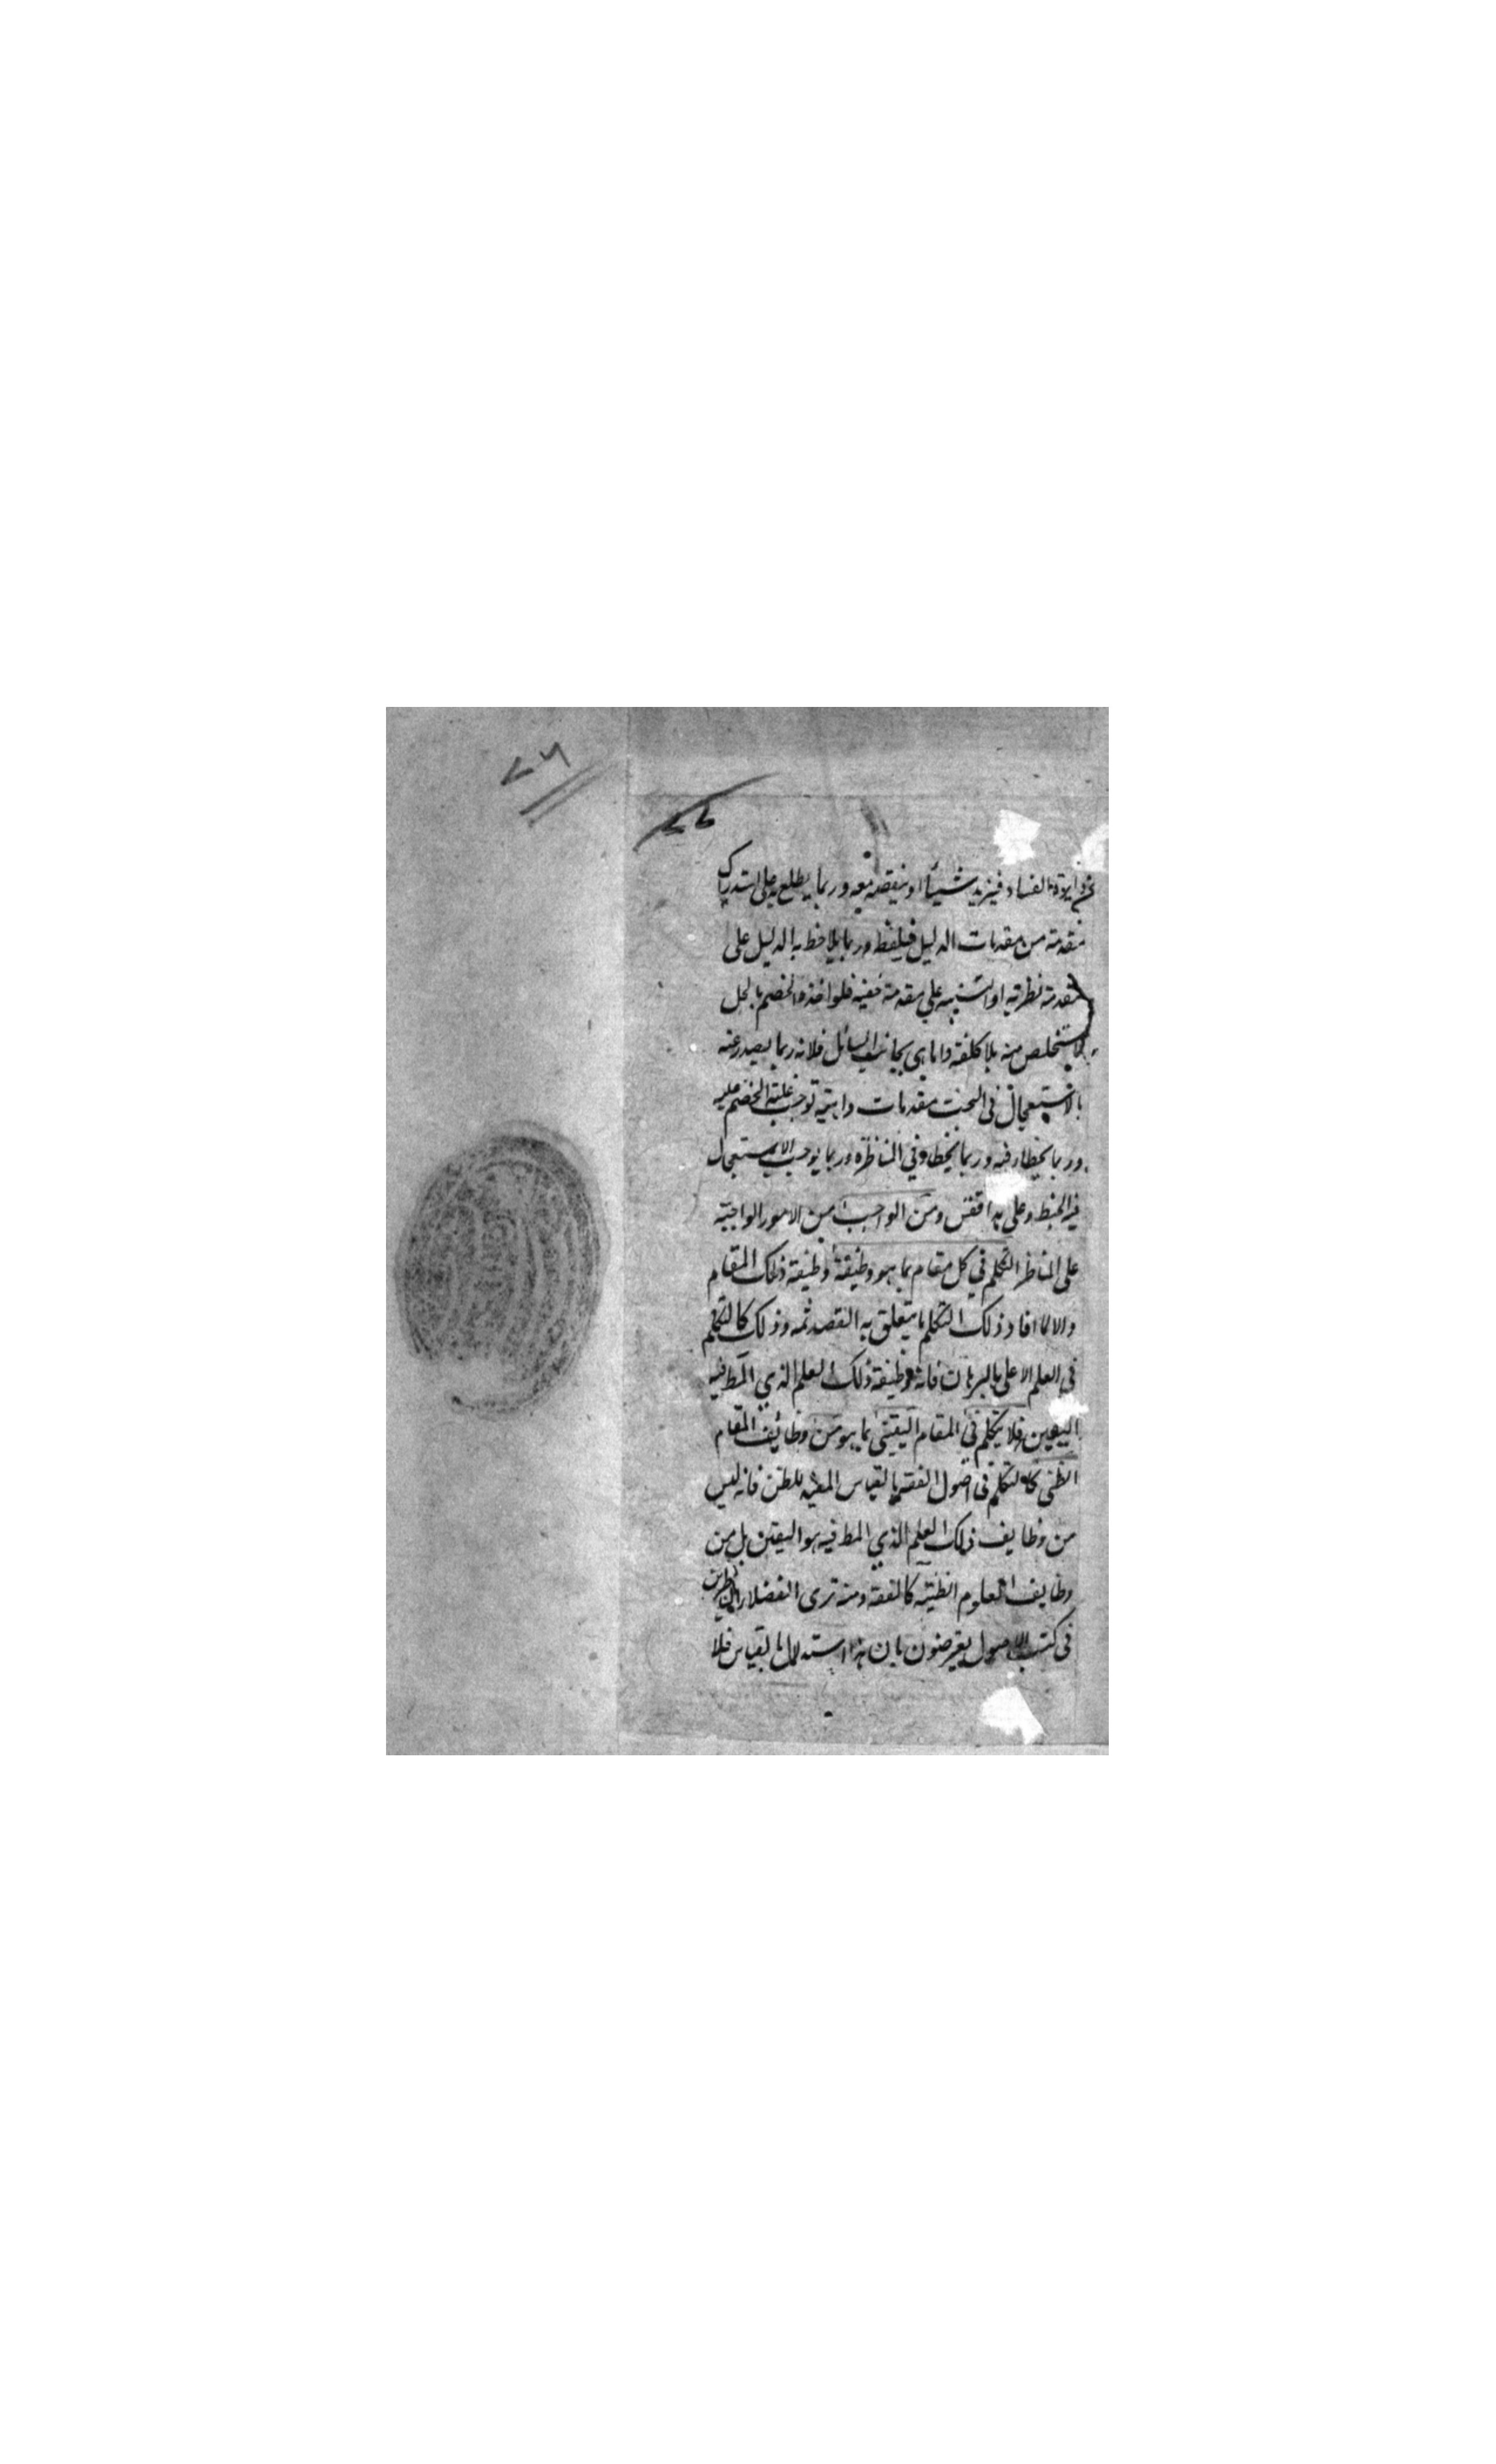 الفساد فيزيد شيئاً او ينقصه معه وربما يطلع به على استدراك
مقدمة من مقدمات الدليل فيلفظ وربما يلاحظ به الدليل على
مقدمة نظرية او التنبيه على مقدمة خفية فلو اخذه الخصم بالحل
يستخلص منه بلا كلفة واما هى بجانب السائل فلانه ربما يصدر عنه
بالاستعجال فى البحث مقدمات واهية توجب غلبة الخصم عليه
وربما يخطاء فيه وربما يخطاء وفي المناظرة وربما يوجب الاستعجال
الخبط وعلى هذا فقس ومن الواجب من الامور الواجبة
على المناظر التكلم في كل مقام بما هو وظيفة وظيفة ذلك المقام
والا لما افاد ذلك التكلم ما يتعلق به القصد ثمه وذلك كالتكلم
في العلم الاعلى بالبرهان فانه وظيفة ذلك العلم الذي المط فيه
اليقين فلا يتكلم فى المقام اليقينى بما هو من وظائف المقام
الظنى كالتكلم فى اصول الفقه بالقياس للظن فانه ليس
من وظايف ذلك العلم الذي المط فيه هو اليقين بل من
وظايف العلوم الظنية كالفقه ومنه ترى الفضلاء الناظرين
فى كتب الاصول يعرضون بان هذا استدلال بالقياس فلا